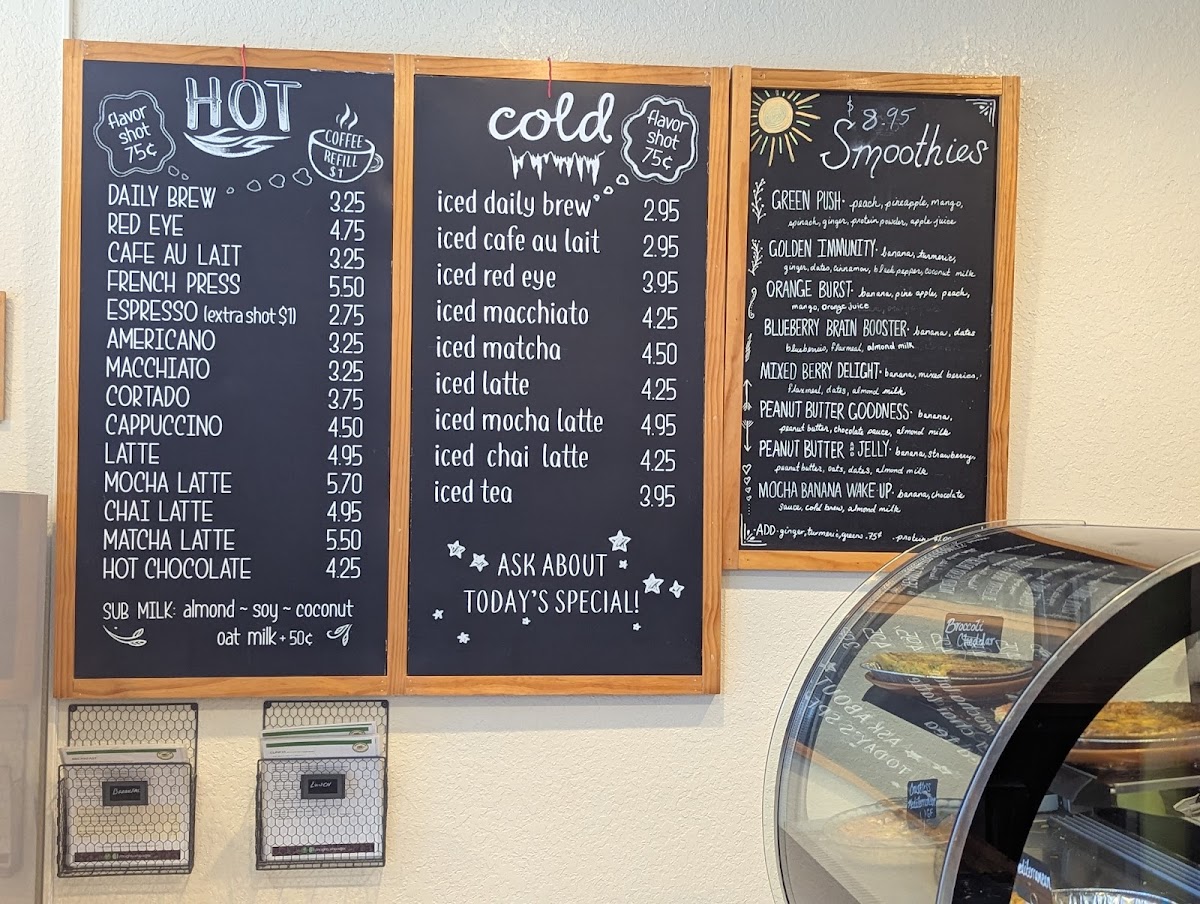 HOT
flavor
shot
75¢
COFFEE
REFILL
$1
DAILY BREW 3.25
RED EYE 4.75
CAFE AU LAIT 3.25
FRENCH PRESS 5.50
ESPRESSO (extra shot $1) 2.75
AMERICANO 3.25
MACCHIATO 3.25
CORTADO 3.75
CAPPUCCINO 4.50
LATTE 4.95
MOCHA LATTE 5.70
CHAI LATTE 4.95
MATCHA LATTE 5.50
HOT CHOCOLATE 4.25
SUB MILK: almond ~ soy ~ coconut
oat milk + 50¢
cold
flavor
shot
75¢
iced daily brew 2.95
iced cafe au lait 2.95
iced red eye 3.95
iced macchiato 4.25
iced matcha 4.50
iced latte 4.25
iced mocha latte 4.95
iced chai latte 4.25
iced tea 3.95
ASK ABOUT
TODAY'S SPECIAL!
$8.95
Smoothies
GREEN PUSH· peach, pineapple, mango,
spinach, ginger, protein powder, apple juice
GOLDEN IMMUNITY· banana, turmeric,
ginger, dates, cinnamon, black pepper, coconut milk
ORANGE BURST· banana, pine apple, peach,
mango, orange juice
BLUEBERRY BRAIN BOOSTER· banana, dates
blueberries, flaxmeal, almond milk
MIXED BERRY DELIGHT· banana, mixed berries,
flaxmeal, dates, almond milk
PEANUT BUTTER GOODNESS· banana,
peanut butter, chocolate sauce, almond milk
PEANUT BUTTER & JELLY· banana, strawberry,
peanut butter, oats, dates, almond milk
MOCHA BANANA WAKE UP· banana, chocolate
sauce, cold brew, almond milk
·ADD· ginger, turmeric, greens .75¢ ·protein
Broccoli
Cheddar
Breakfast
Lunch